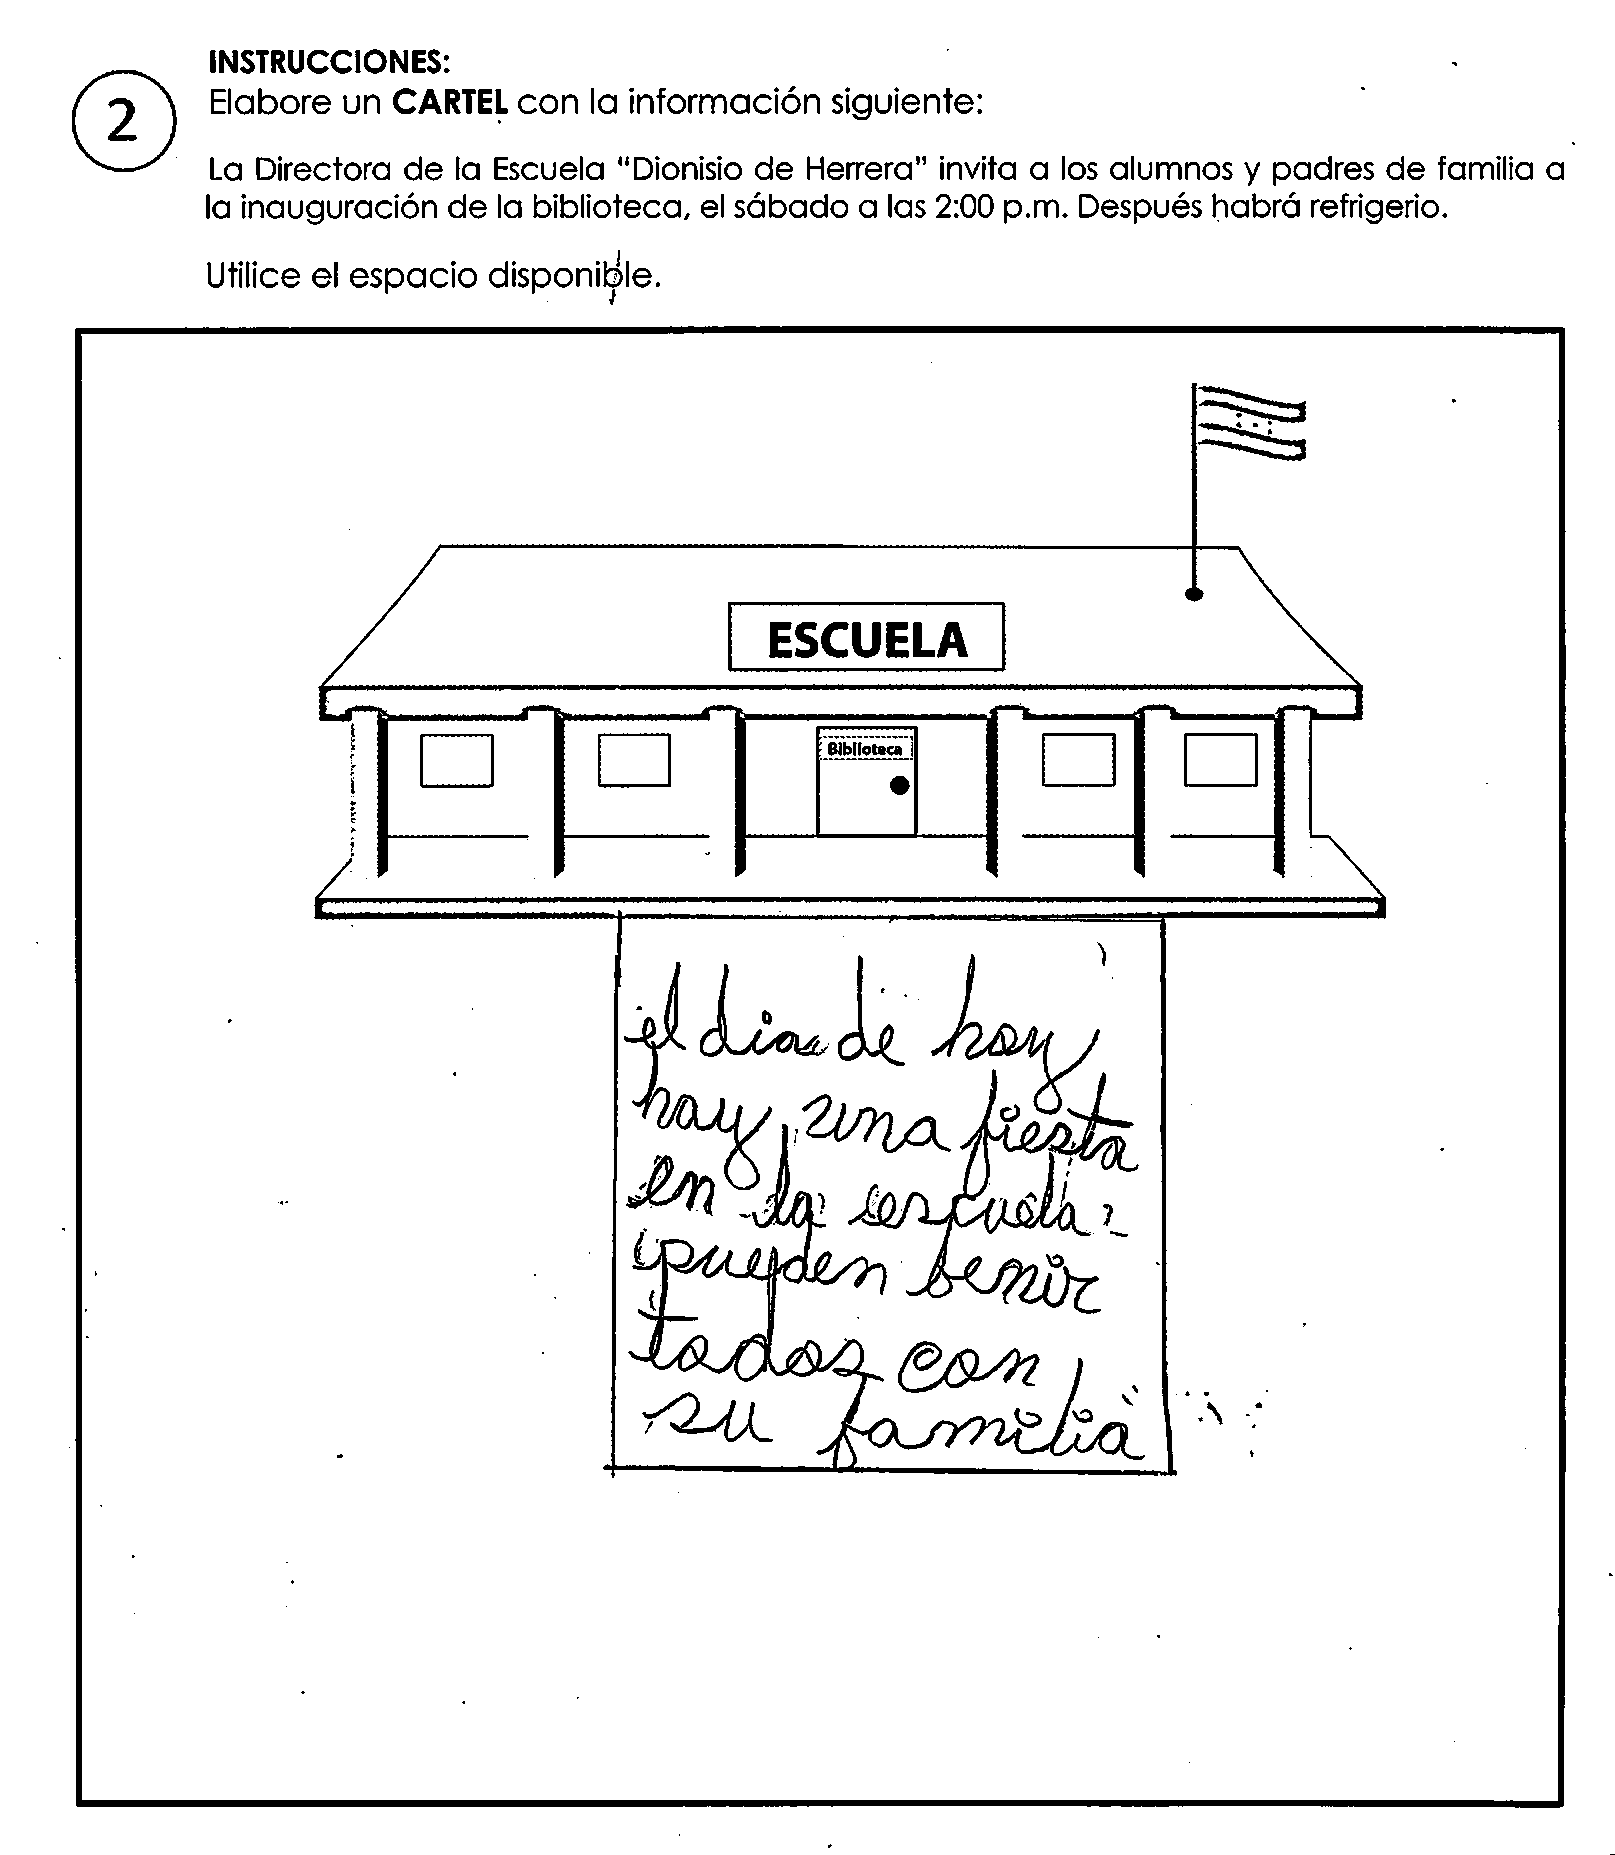 INSTRUCCIONES:
2
Elabore un CARTEL con la información siguiente:
La Directora de la Escuela "Dionisio de Herrera" invita a los alumnos y padres de familia a
la inauguración de la biblioteca, el sábado a las 2:00 p.m. Después habrá refrigerio.
Utilice el espacio disponible.
ESCUELA
Biblioteca
el dia de hoy
hay una fiesta
en la escuela
pueden benir
todos con
su familia